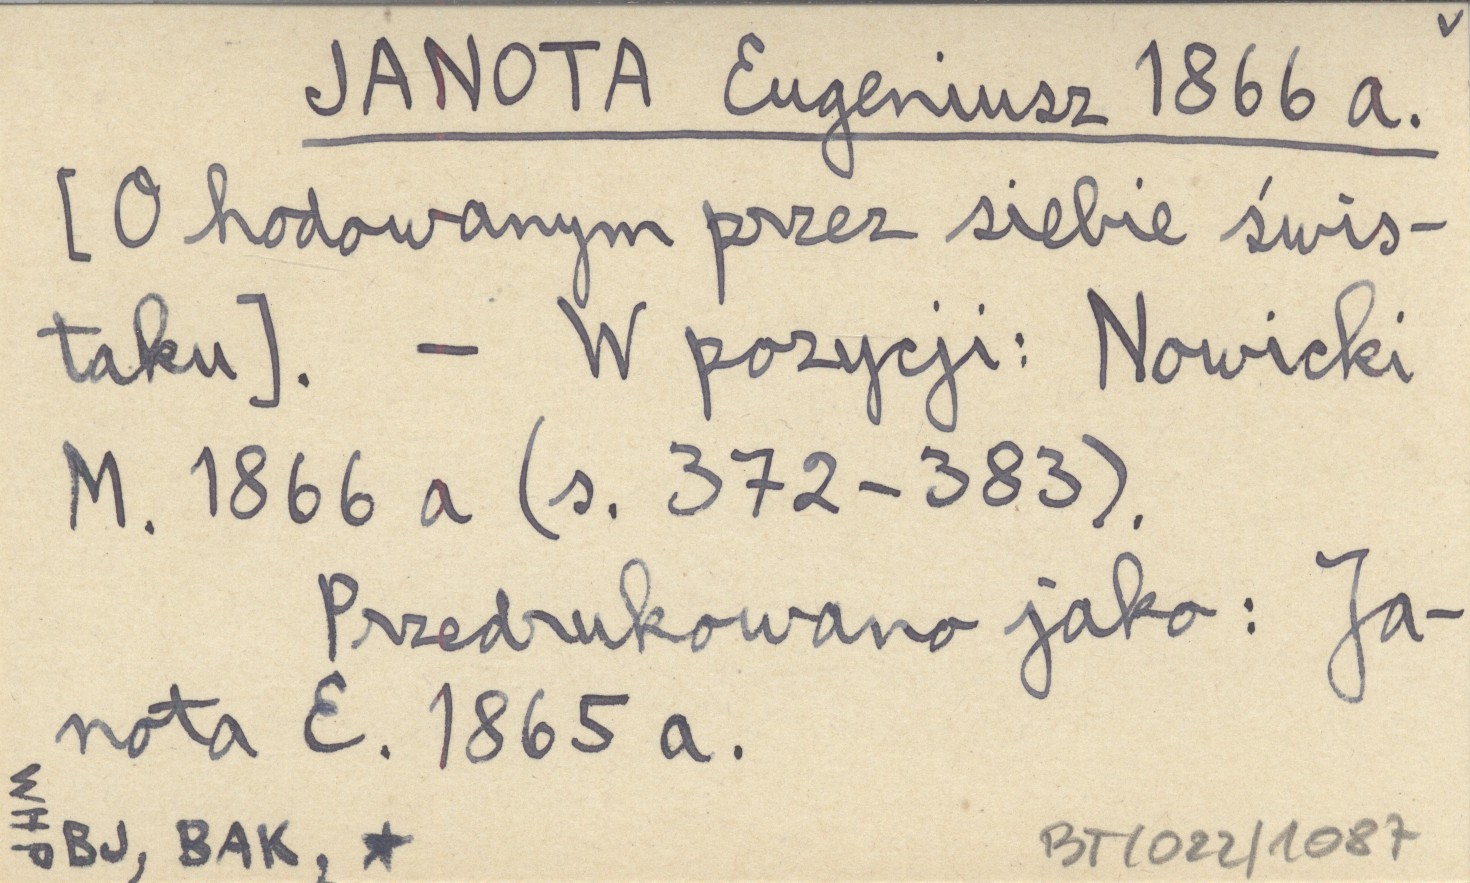 JANOTA Eugeniusz 1866 a.
[O hodowanym przez siebie świs-
taku]. – W pozycji: Nowicki
M. 1866 a (s. 372–383).
Przedrukowano jako: Ja-
nota E. 1865 a.
PHW
BJ, BAK, ★
BT/022/1087